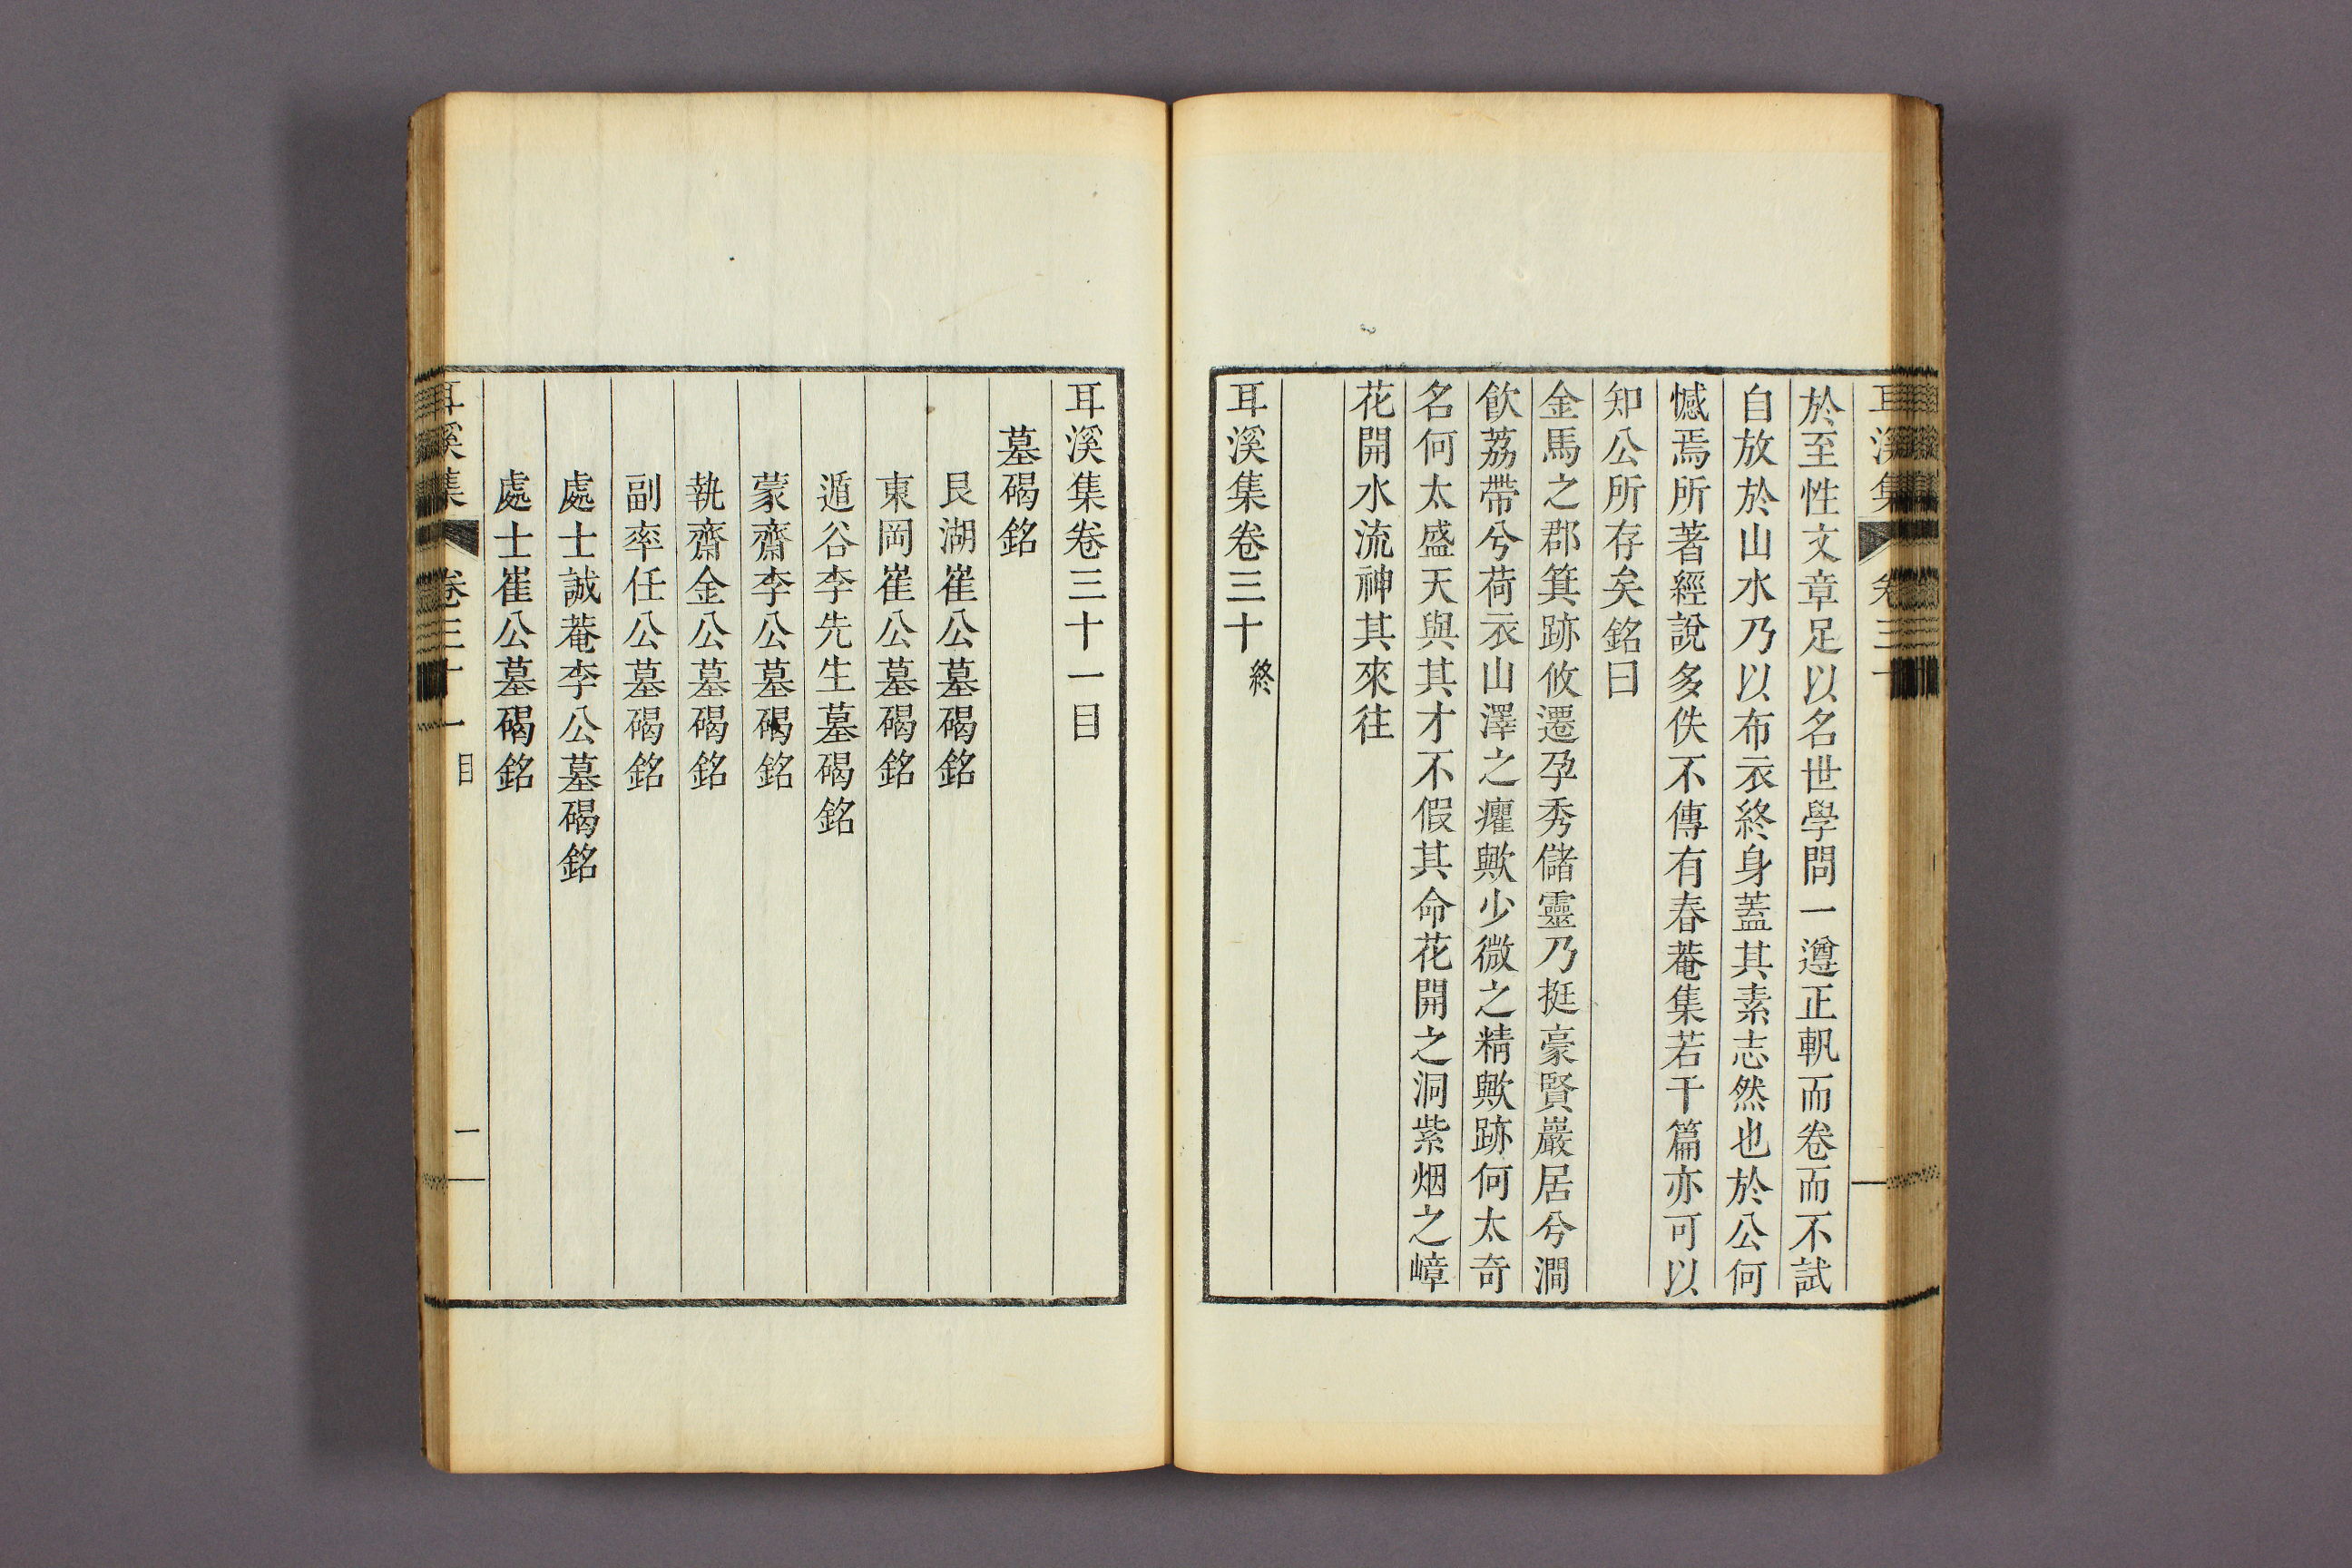 於至性文章足以名世學問一遵正軌而卷而不試
自放於山水乃以布衣終身蓋其素志然也於公何
憾焉所著經說多佚不傳有春菴集若干篇亦可以
知公所存矣銘曰
金馬之郡箕跡攸遷孕秀儲靈乃挺豪賢巖居兮澗
飲荔帶兮荷衣山澤之癯歟少微之精歟跡何太奇
名何太盛天與其才不假其命花開之洞紫烟之嶂
花開水流神其來往
耳溪集卷三十終
耳溪集卷三十一目
墓碣銘
艮湖崔公墓碣銘
東岡崔公墓碣銘
遁谷李先生墓碣銘
蒙齋李公墓碣銘
執齋金公墓碣銘
副率任公墓碣銘
處士誠菴李公墓碣銘
處士崔公墓碣銘
耳溪集 卷三十一 目 一